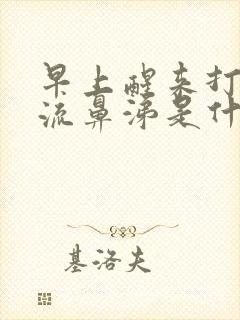 早上醒来打
流鼻涕是什
基洛夫